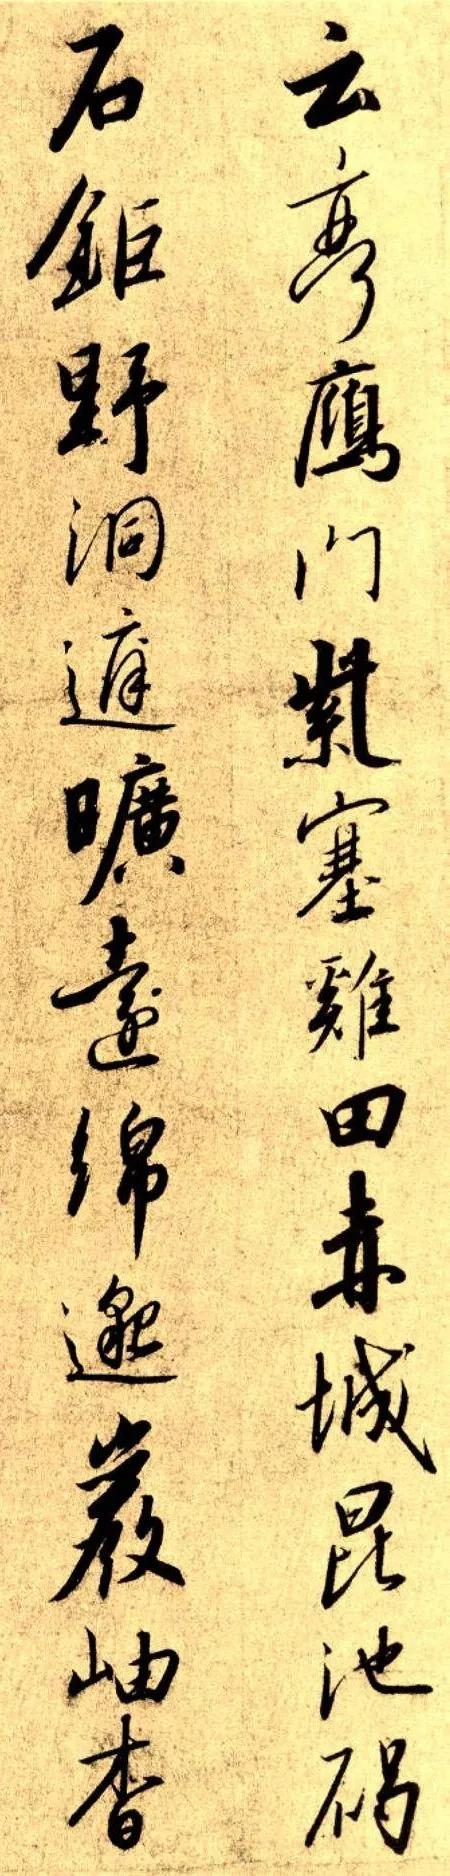 云亭鴈門紫塞雞田赤城昆池碣
石鉅野洞庭曠遠綿邈巖岫杳